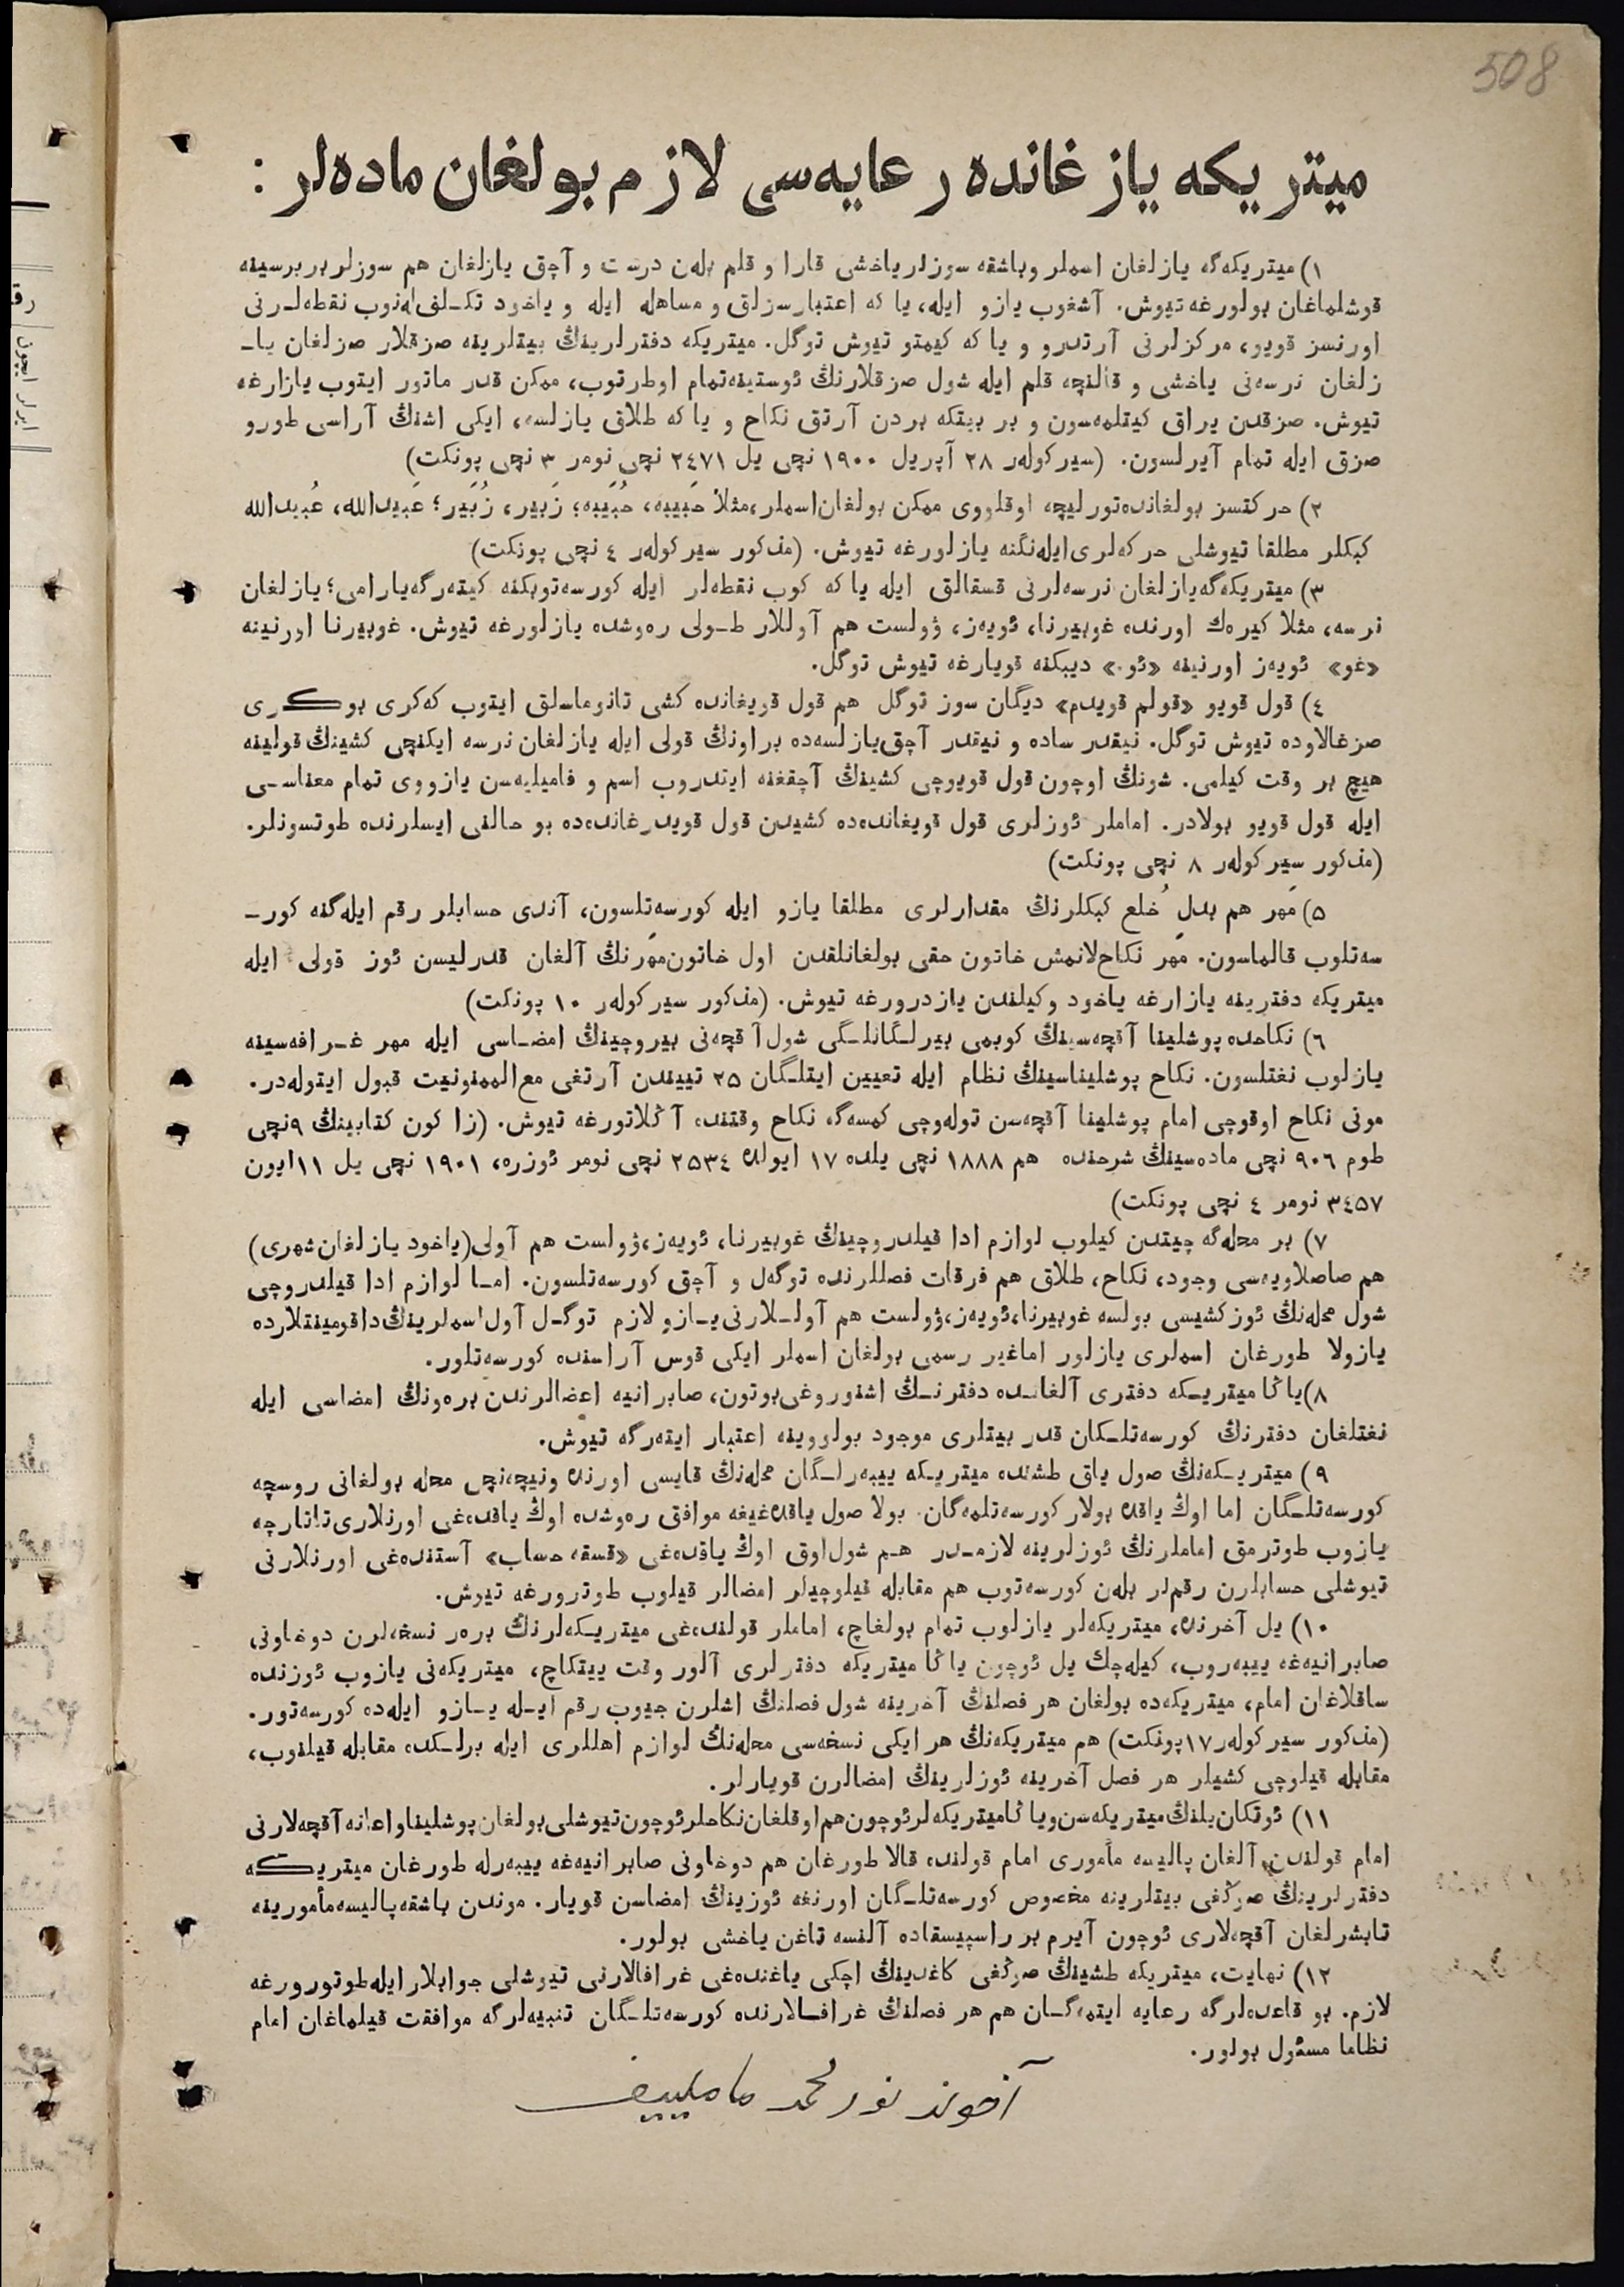 508
ميتريكه يازغانده رعايه‌سى لازم بولغان ماده‌لر :
١) ميتريكه‌گه يازلغان اسملر وباشقه سوزلر ياخشى قارا و قلم بله‌ن درست و آچق يازلغان هم سوزلر بربرسينه
قوشلماغان بولورغه تيوش. آشغوب يازو ايله، يا كه اعتبارسزلق و مساهله ايله و ياخود تكـلف‌له‌نوب نقطه‌لـرنى
اورنسز قويو، مركزلرنى آرتدرو و يا كه كيمتو تيوش توگل. ميتريكه دفترلرينڭ بيتلرينه صزقلار صزلغان يا‍ـ
زلغان نرسه‌نى ياخشى و قالنچه قلم ايله شول صزقلارنڭ ئوستينه تمام اوطرتوب، ممكن قدر ماتور ايتوب يازارغه
تيوش. صزقدن يراق كيتلمه‌سون و بر بيتكه بردن آرتق نكاح و يا كه طلاق يازلسه، ايكى اشنڭ آراسى طورو
صزق ايله تمام آيرلسون. (سيركوله‌ر ٢٨ آپريل ١٩٠٠ نچى يل ٢٤٧١ نچى نومر ٣ نچى پونكت)
٢) حركتسز بولغانده تورليچه اوقلووى ممكن بولغان اسملر، مثلا حَبيبه، حُبَيبه؛ زَبير، زُبَير؛ عَبيدالله، عُبيدالله
كبكلر مطلقا تيوشلى حركه‌لرى ايله‌نگنه يازلورغه تيوش. (مذكور سيركوله‌ر ٤ نچى پونكت)
٣) ميتريكه‌گه يازلغان نرسه‌لرنى قسقالق ايله يا كه كوب نقطه‌لر ايله كورسه‌توبكنه كيته‌رگه يارامى؛ يازلغان
نرسه، مثلا كيره‌ك اورنده غوبيرنا، ئويه‌ز، ۋولست هم آوللار طـولى ره‌وشده يازلورغه تيوش. غوبيرنا اورنينه
«غو» ئويه‌ز اورنينه «ئو.» ديبكنه قويارغه تيوش توگل.
٤) قول قويو «قولم قويدم» ديگان سوز توگل هم قول قويغانده كشى تانوماسلق ايتوب كه‌كرى بوكـرى
صزغالاوده تيوش توگل. نيقدر ساده و نيقدر آچق يازلسه‌ده براونڭ قولى ايله يازلغان نرسه ايكنچى كشينڭ قولينه
هيچ بر وقت كيلمى. شونڭ اوچون قول قويوچى كشينڭ آچقغنه ايتدروب اسم و فاميليه‌سن يازووى تمام معناسـى
ايله قول قويو بولادر. اماملر ئوزلرى قول قويغانده‌ده كشيدن قول قويدرغانده‌ده بو حالنى ايسلرنده طوتسونلر.
(مذكور سيركوله‌ر ٨ نچى پونكت)
٥) مَهر هم بدلِ خُلع كبكلرنڭ مقدارلرى مطلقا يازو ايله كورسه‌تلسون، آندى حسابلر رقم ايله‌گنه كورـ
سه‌تلوب قالماسون. مهر نكاح‌لانمش خاتون حقى بولغانلقدن اول خاتون مهرنڭ آلغان قدرليسن ئوز قولى ايله
ميتريكه دفترينه يازارغه ياخود وكيلندن يازدرورغه تيوش. (مذكور سيركوله‌ر ١٠ پونكت)
٦) نكاحده پوشلينا آقچه‌سينڭ كوبمى بيرلـگانلـگى شول آقچه‌نى بيروچينڭ امضـاسى ايله مهر غـرافه‌سينه
يازلوب نغتلسون. نكاح پوشليناسينڭ نظام ايله تعيين ايتلـگان ٢٥ تييندن آرتغى مع‌الممنونيت قبول ايتوله‌در.
مونى نكاح اوقوچى امام پوشلينا آقچه‌سن توله‌وچى كمسه‌گه نكاح وقتنده آڭلاتورغه تيوش. (زاكون كتابينڭ ٩نچى
طوم ٩٠٦ نچى ماده‌سينڭ شرحنده هم ١٨٨٨ نچى يلده ١٧ ايولده ٢٥٣٤ نچى نومر ئوزره، ١٩٠١ نچى يل ١١ايون
٣٤٥٧ نومر ٤ نچى پونكت)
٧) بر محله‌گه چيتدن كيلوب لوازم ادا قيلدروچينڭ غوبيرنا، ئويه‌ز، ۋولست هم آولى (ياخود يازلغان شهرى)
هم صاصلاويه‌سى وجود، نكاح، طلاق هم فرقات فصللرنده توگه‌ل و آچق كورسه‌تلسون. امـا لوازم ادا قيلدروچى
شول محله‌نڭ ئوز كشيسى بولسه غوبيرنا، ئويه‌ز، ۋولست هم آولـلارنى يـازو لازم توگـل آول اسملرينڭ داقومينتلارده
يازولا طورغان اسملرى يازلور اما غير رسمى بولغان اسملر ايكى قوس آراسنده كورسه‌تلور.
٨) ياڭا ميتريـكه دفترى آلغانـده دفترنـڭ اشنوروغى بوتون، صابرانيه اعضالرندن بره‌ونڭ امضاسى ايله
نغتلغان دفترنڭ كورسه‌تلـكان قدر بيتلرى موجود بولووينه اعتبار ايته‌رگه تيوش.
٩) ميتريـكه‌نڭ صول ياق طشنده ميتريـكه ييبه‌رلـگان محله‌نڭ قايسى اورنده ونيچه‌نچى محله بولغانى روسچه
كورسه‌تلـگان اما اوڭ ياقده بولار كورسه‌تلمه‌گان. بولا صول ياقده‌غيغه موافق ره‌وشده اوڭ ياقده‌غى اورنلارى تاتارچه
يازوب طوترمق اماملرنڭ ئوزلرينه لازمـدر هـم شول اوق اوڭ ياقده‌غى «قسقه حساب» آستنده‌غى اورنلارنى
تيوشلى حسابلرن رقم‌لر بله‌ن كورسه‌توب هم مقابله قيلوچيلر امضالر قيلوب طوترورغه تيوش.
١٠) يل آخرنده، ميتريكه‌لر يازلوب تمام بولغاچ، اماملر قولنده‌غى ميتريـكه‌لرنڭ بره‌ر نسخه‌لرن دوخاونى
صابرانيه‌غه ييبه‌روب، كيله‌چك يل ئوچون ياڭا ميتريكه دفترلرى آلور وقت ييتكاچ، ميتريكه‌نى يازوب ئوزنده
ساقلاغان امام، ميتريكه‌ده بولغان هر فصلنڭ آخرينه شول فصلنڭ اشلرن جيوب رقم ايـله يـازو ايله‌ده كورسه‌تور.
(مذكور سيركوله‌ر ١٧پونكت) هم ميتريكه‌نڭ هر ايكى نسخه‌سى محله‌نڭ لوازم اهللرى ايله برلـكده مقابله قيلنوب،
مقابله قيلوچى كشيلر هر فصل آخرينه ئوزلرينڭ امضالرن قويارلر.
١١) ئوتكان يلنڭ ميتريكه‌سن و ياڭا ميتريكه‌لر ئوچون هم اوقلغان نكاحلر ئوچون تيوشلى بولغان پوشلينا و اعانه آقچه‌لارنى
امام قولندن آلغان پاليسه مأمورى امام قولنده قالا طورغان هم دوخاونى صابرانيه‌غه ييبه‌رله طورغان ميتريـكه
دفترلرينڭ صوڭغى بيتلرينه مخصوص كورسه‌تلـگان اورنغه ئوزينڭ امضاسن قويار. موندن باشقه پاليسه مأمورينه
تابشرلغان آقچه‌لارى ئوچون آيرم بر راسپيسقاده آلنسه تاغن ياخشى بولور.
١٢) نهايت، ميتريكه طشينڭ صوڭغى كاغدينڭ اچكى ياغنده‌غى غرافالارنى تيوشلى جوابلار ايله طوتورورغه
لازم. بو قاعده‌لرگه رعايه ايتمه‌گـان هم هر فصلنڭ غرافـالارنده كورسه‌تلـگان تنبيه‌لرگه موافقت قيلماغان امام
نظاما مسئول بولور.
آخوند نورمحمد مامليیف